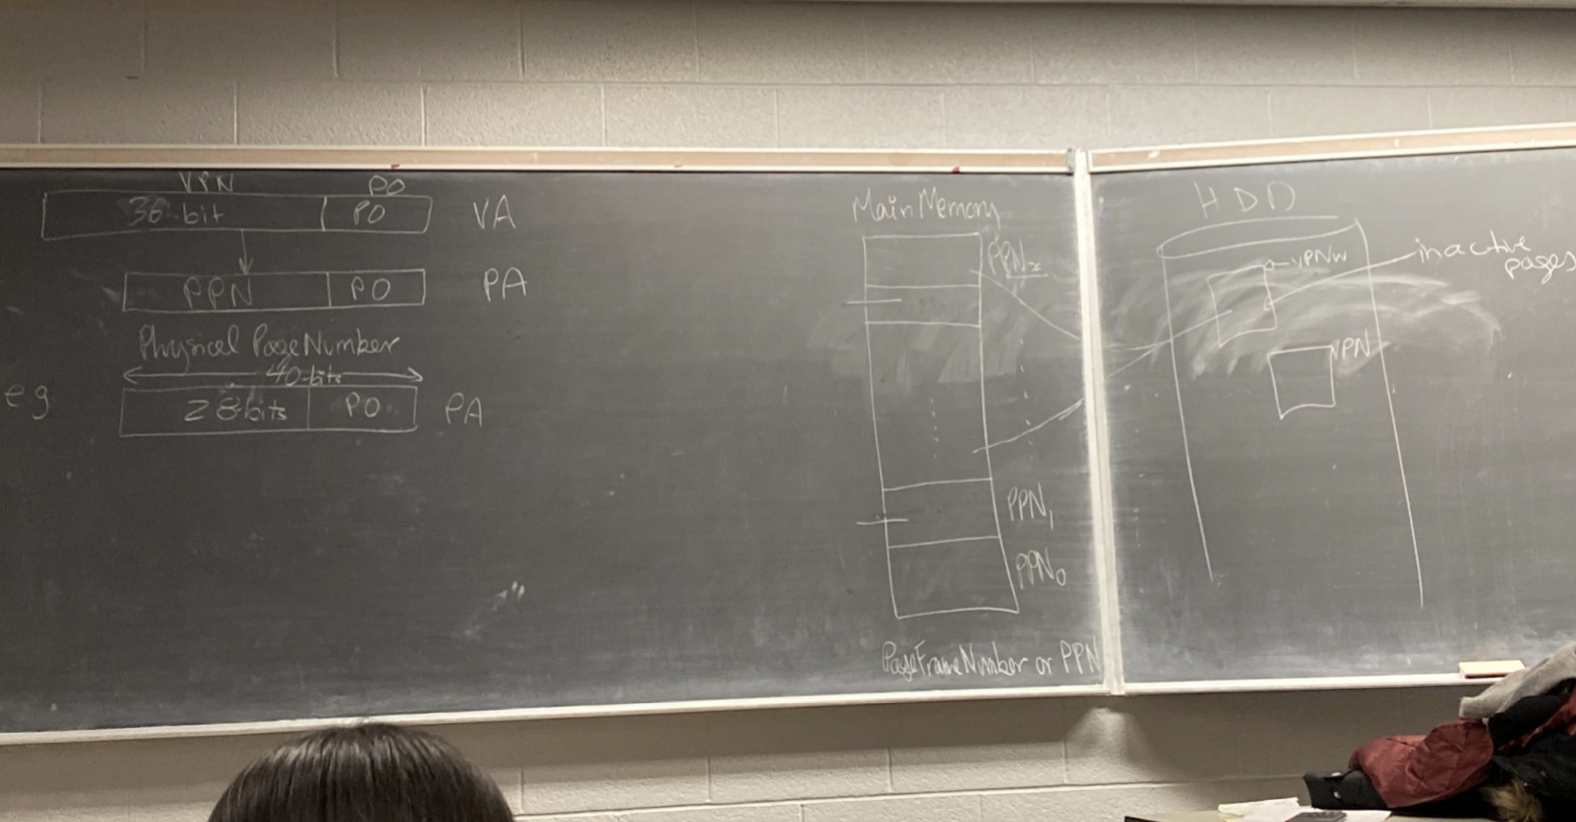 VPN PO
36-bit PO VA
PPN PO PA
Physical Page Number
40-bits
eg 28-bits PO PA
Main Memory
PPN
PPN1
PPN0
Page Frame Number or PPN
HDD
VPN
inactive
pages
VPN